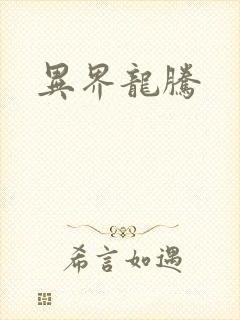 異界龍騰
希言如遇